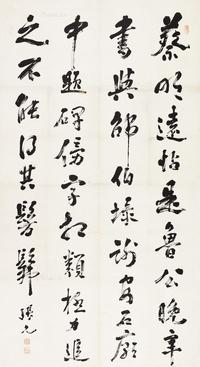 蔡明遠帖是魯公晚年
書與邵伯埭謝安石廟
中題碑傍字相類極力追
之不能得其髣髴